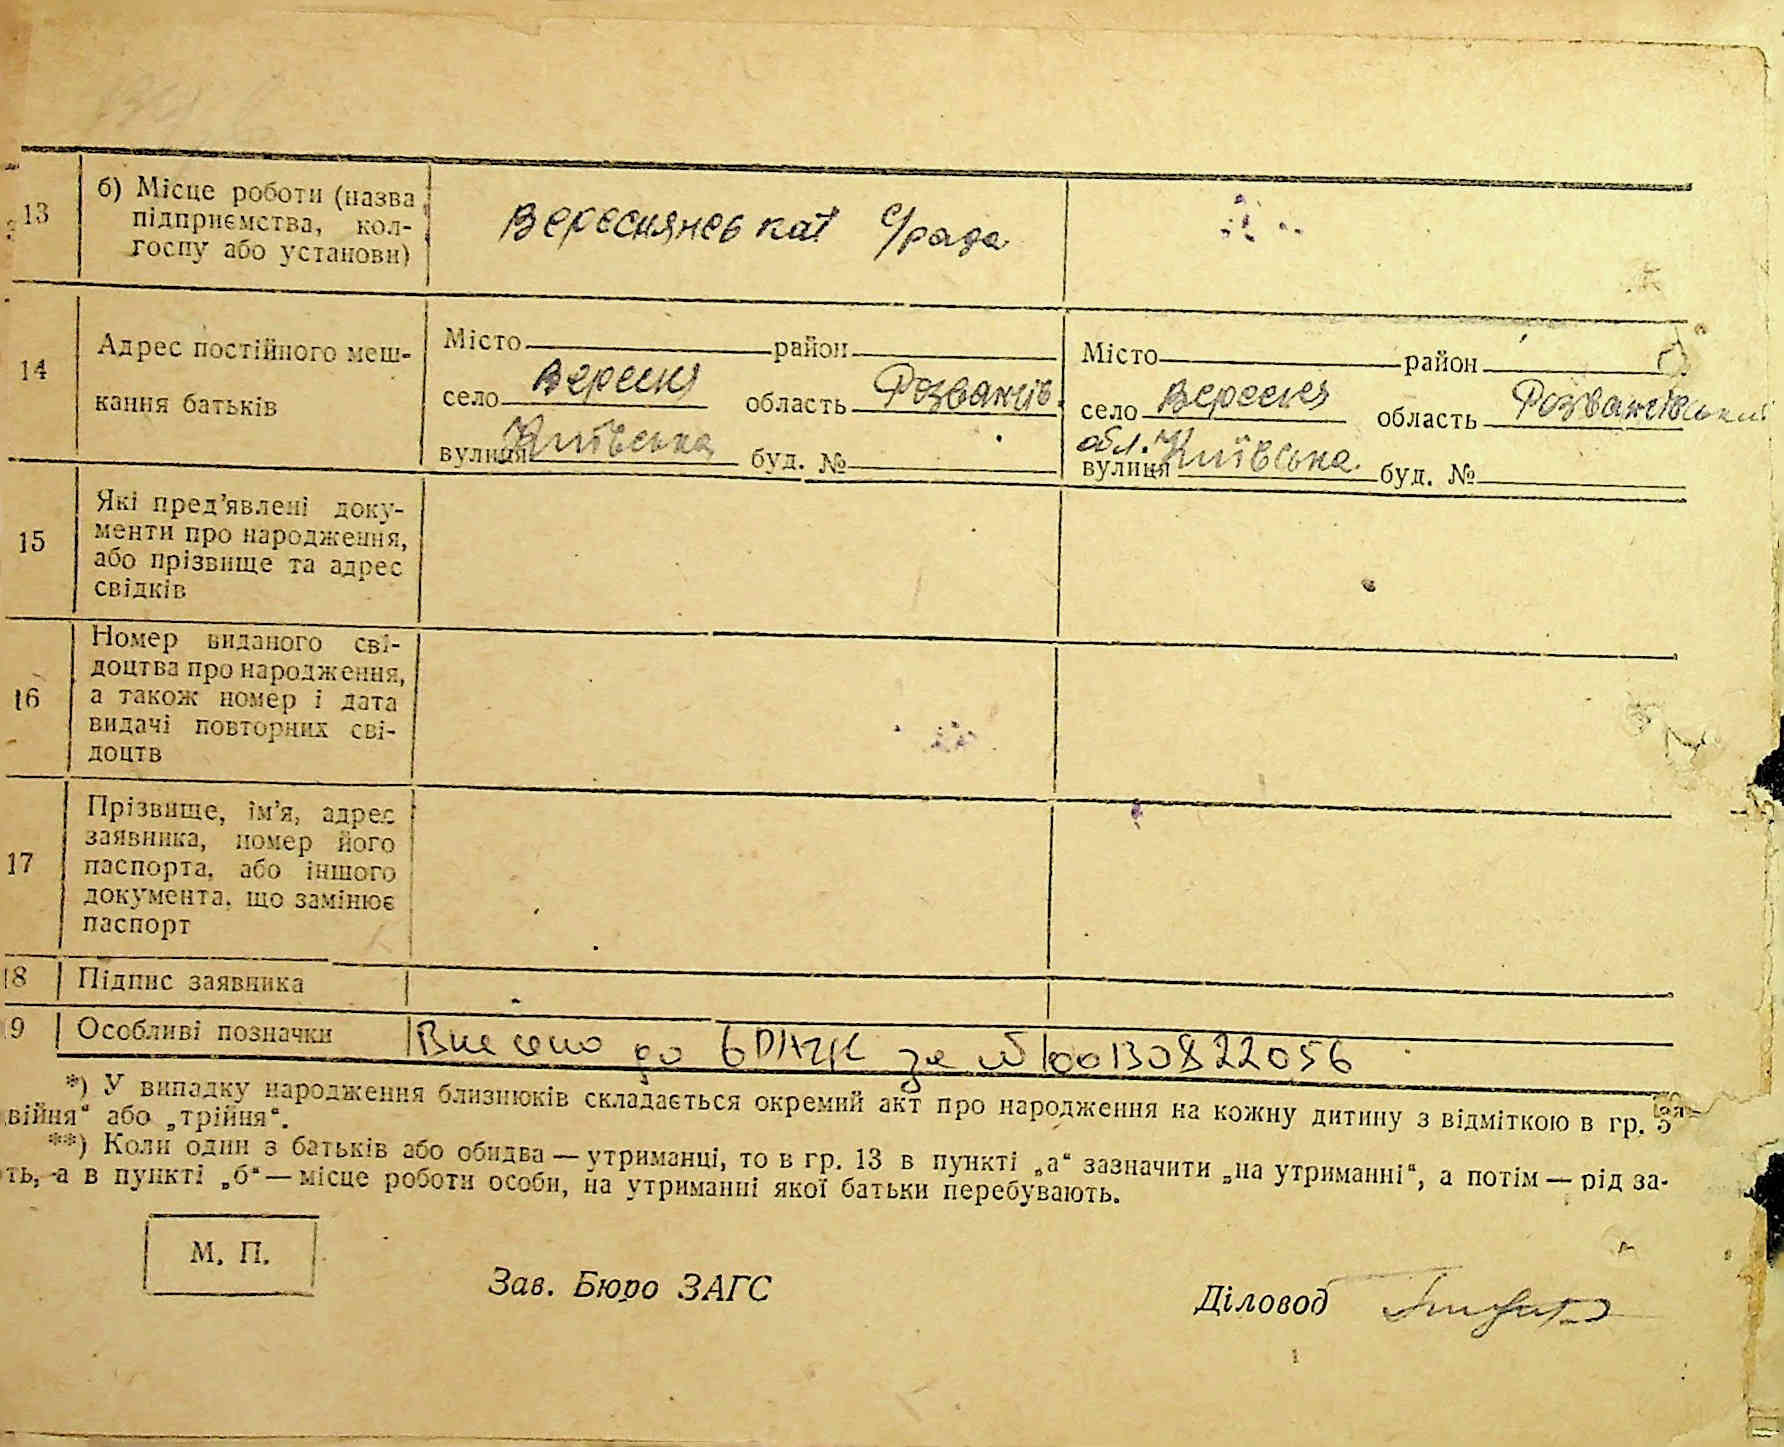 13
б) Місце роботи (назва
підприємства, кол-
госпу або установи)
Вереснянськаї с/рада
14
Адрес постійного меш-
кання батьків
Місто район
село Вересня область Розважів.
вулиця Київська буд. №
Місто район
село Вересня область Розважівський
обл.
вулиця Київська. буд. №
15
Які пред'явлені доку-
менти про народження,
або прізвище та адрес
свідків
16
Номер виданого сві-
доцтва про народження,
а також номер і дата
видачі повторних сві-
доцтв
17
Прізвище, ім'я, адрес
заявника, номер його
паспорта, або іншого
документа, що замінює
паспорт
18 Підпис заявника
9 Особливі позначки
Внесено до за №00130822056
*) У випадку народження близнюків складається окремий акт про народження на кожну дитину з відміткою в гр. 5
війня“ або „трійня“.
**) Коли один з батьків або обидва — утриманці, то в гр. 13 в пункті „а“ зазначити „на утриманні“, а потім — рід за-
ть, а в пункті „б“ — місце роботи особи, на утриманні якої батьки перебувають.
М. П.
Зав. Бюро ЗАГС
Діловод